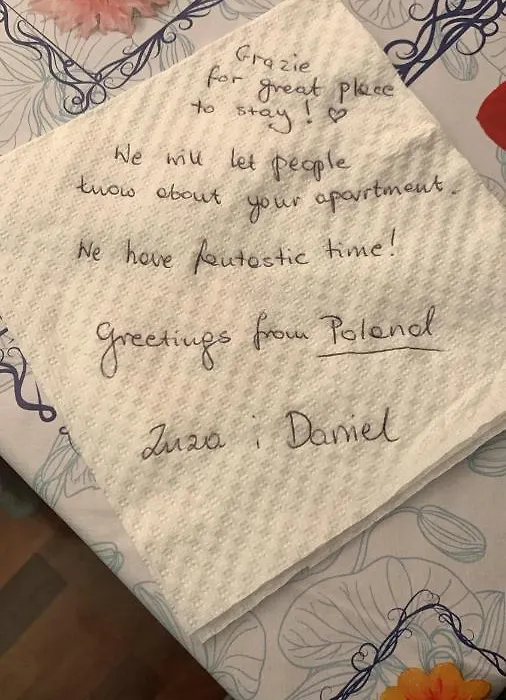 Grazie
for great place
to stay! ♡
We will let people
know about your apartment.
We have fantastic time!
Greetings from Poland
Zuza i Daniel